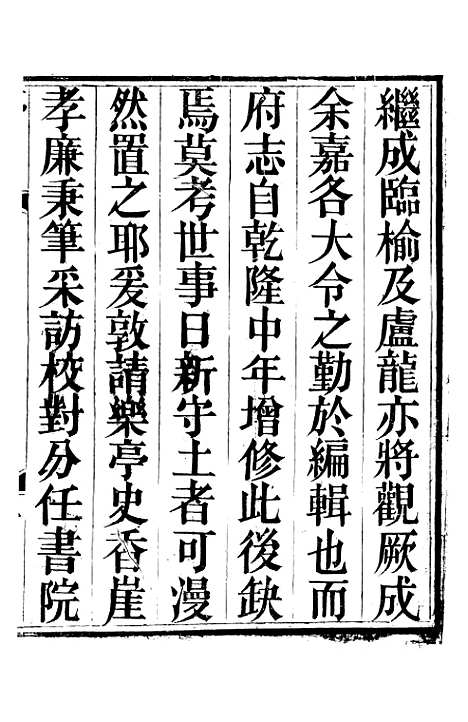 繼成臨榆及盧龍亦將觀厥成
余嘉各大令之勤於編輯也而
府志自乾隆中年增修此後缺
焉莫考世事日新守土者可漫
然置之耶爰敦請樂亭史香崖
孝廉秉筆采訪校對分任書院